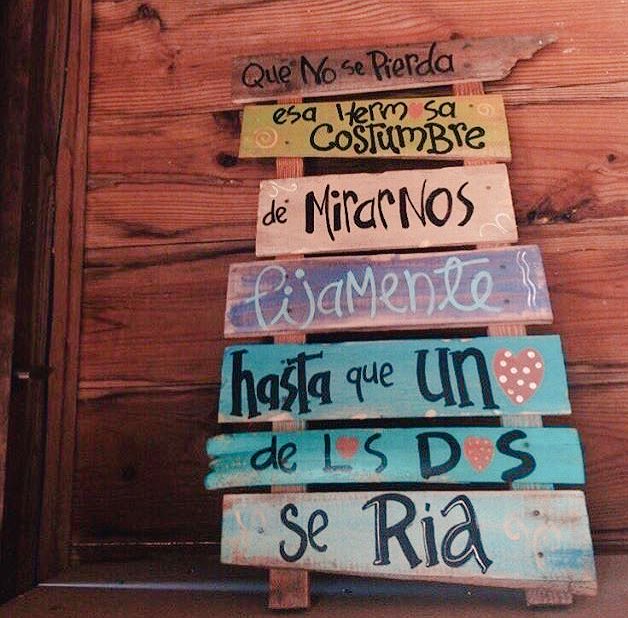 Que No se Pierda
esa Hermosa
Costumbre
de Mirarnos
fijamente
hasta que uno
de Los Dos
se Ria